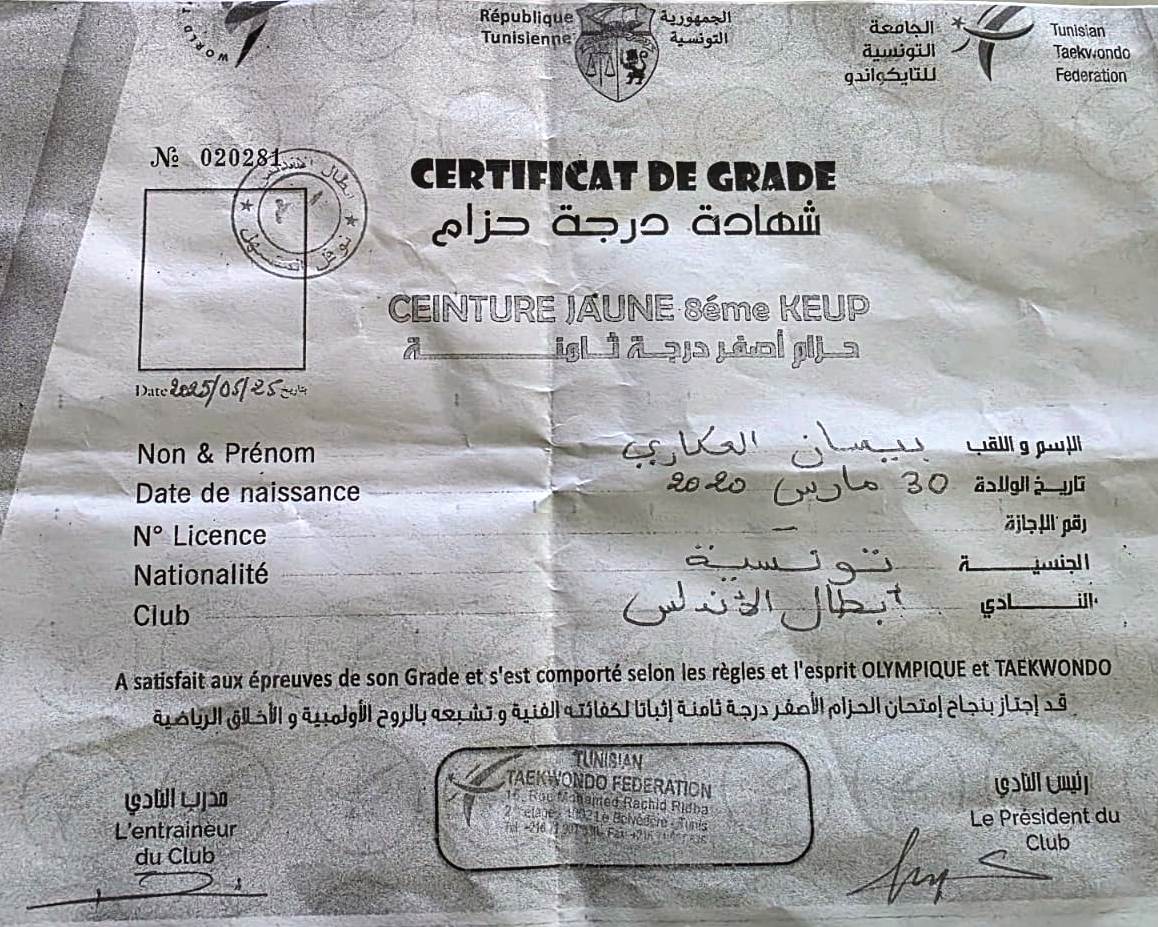 WORLD T
République
Tunisienne
الجمهورية
التونسية
الجامعة
التونسية
للتايكواندو
Tunisian
Taekwondo
Federation
№ 020281
CERTIFICAT DE GRADE
شهادة درجة حزام
CEINTURE JAUNE 8éme KEUP
حزام أصفر درجة ثامنة
Date 2025/05/25 تاريخ
Non & Prénom بيسان العكاري الإسم و اللقب
Date de naissance 30 مارس 2020 تاريخ الولادة
N° Licence – رقم الإجازة
Nationalité تونسية الجنسية
Club أبطال الأندلس النادي
A satisfait aux épreuves de son Grade et s'est comporté selon les règles et l'esprit OLYMPIQUE et TAEKWONDO
قد إجتاز بنجاح إمتحان الحزام الأصفر درجة ثامنة إثباتا لكفائته الفنية و تشبعه بالروح الأولمبية و الأخلاق الرياضية
مدرب النادي
L'entraineur
du Club
TUNISIAN
TAEKWONDO FEDERATION
Rue Mohamed Rachid Ridha
Le Belvédère - Tunis
رئيس النادي
Le Président du
Club